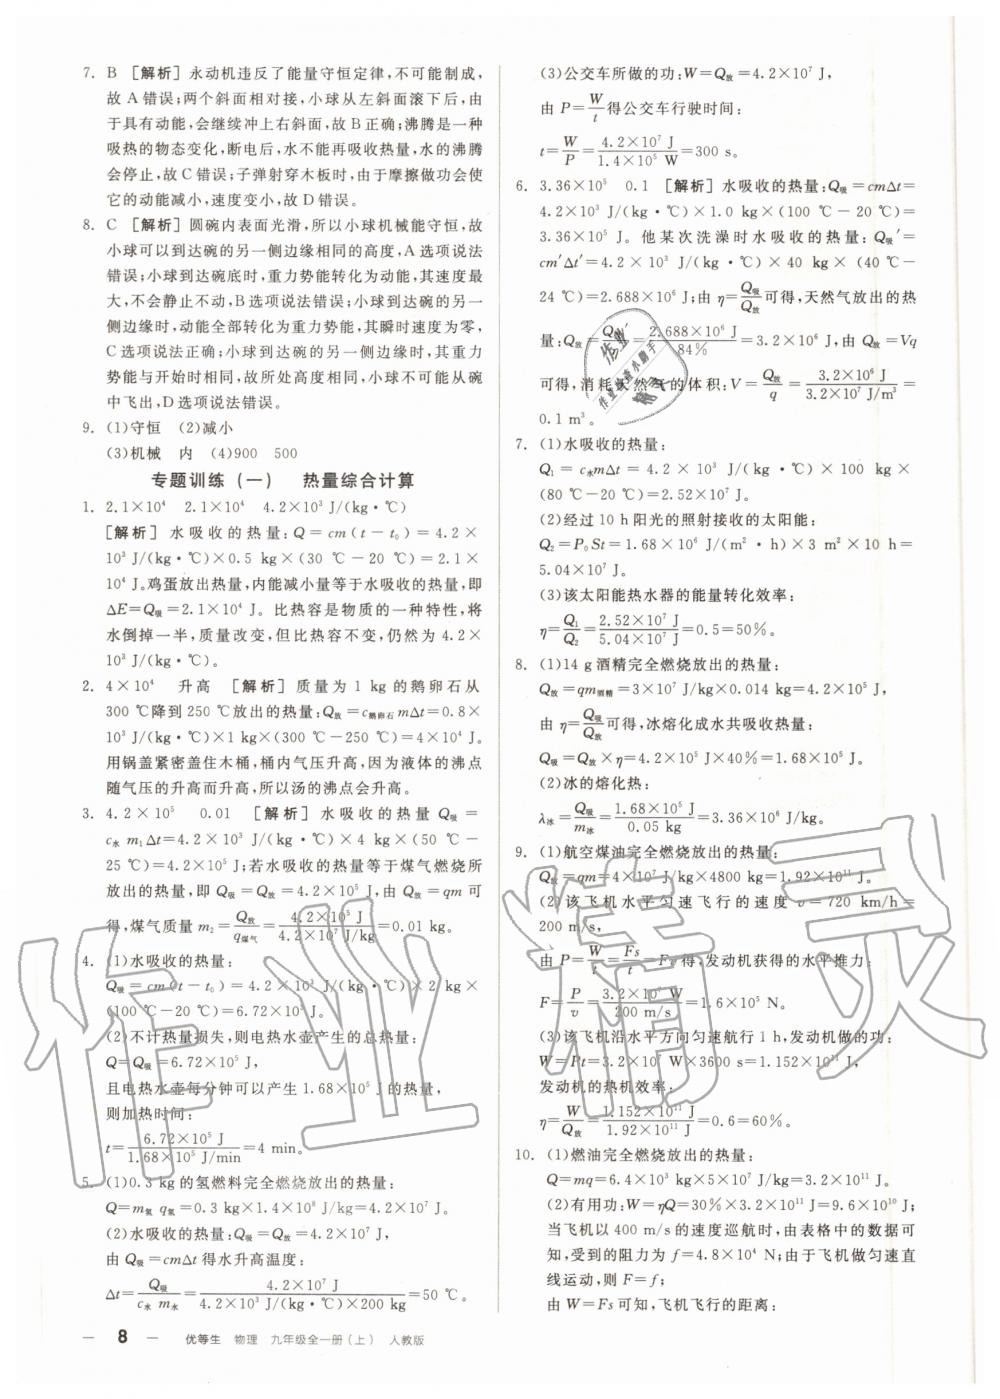 7. B [解析]永动机违反了能量守恒定律,不可能制成,
故 A 错误;两个斜面相对接,小球从左斜面滚下后,由
于具有动能,会继续冲上右斜面,故 B 正确;沸腾是一种
吸热的物态变化,断电后,水不能再吸收热量,水的沸腾
会停止,故 C 错误;子弹射穿木板时,由于摩擦做功会使
它的动能减小,速度变小,故 D 错误。
8. C [解析] 圆碗内表面光滑,所以小球机械能守恒,故
小球可以到达碗的另一侧边缘相同的高度,A 选项说法
错误;小球到达碗底时,重力势能转化为动能,其速度最
大,不会静止不动,B 选项说法错误;小球到达碗的另一
侧边缘时,动能全部转化为重力势能,其瞬时速度为零,
C 选项说法正确;小球到达碗的另一侧边缘时,其重力
势能与开始时相同,故所处高度相同,小球不可能从碗
中飞出,D 选项说法错误。
9. (1)守恒 (2)减小
(3)机械 内 (4)900 500
专题训练(一) 热量综合计算
1. 2.1×10⁴ 2.1×10⁴ 4.2×10³ J/(kg·℃)
[解析] 水吸收的热量:Q=cm(t-t₀)=4.2×
10³ J/(kg·℃)×0.5 kg×(30 ℃-20 ℃)=2.1×
10⁴ J。鸡蛋放出热量,内能减小量等于水吸收的热量,即
ΔE=Q吸=2.1×10⁴ J。比热容是物质的一种特性,将
水倒掉一半,质量改变,但比热容不变,仍然为 4.2×
10³ J/(kg·℃)。
2. 4×10⁴ 升高 [解析] 质量为 1 kg 的鹅卵石从
300 ℃降到 250 ℃放出的热量:Q放=c鹅卵石mΔt=0.8×
10³ J/(kg·℃)×1 kg×(300 ℃-250 ℃)=4×10⁴ J。
用锅盖紧密盖住木桶,桶内气压升高,因为液体的沸点
随气压的升高而升高,所以汤的沸点会升高。
3. 4.2×10⁵ 0.01 [解析] 水吸收的热量 Q吸=
c水m₁Δt=4.2×10³ J/(kg·℃)×4 kg×(50 ℃-
25 ℃)=4.2×10⁵ J;若水吸收的热量等于煤气燃烧所
放出的热量,即 Q吸=Q放=4.2×10⁵ J,由 Q放=qm 可
得,煤气质量 m₂=Q放/q煤气=4.2×10⁵ J/4.2×10⁷ J/kg=0.01 kg。
4. (1)水吸收的热量:
Q吸=cm(t-t₀)=4.2×10³ J/(kg·℃)×2 kg×
(100 ℃-20 ℃)=6.72×10⁵ J。
(2)不计热量损失,则电热水壶产生的总热量:
Q=Q吸=6.72×10⁵ J,
且电热水壶每分钟可以产生 1.68×10⁵ J 的热量,
则加热时间:
t=6.72×10⁵ J/1.68×10⁵ J/min=4 min。
5. (1)0.3 kg 的氢燃料完全燃烧放出的热量:
Q=m氢q氢=0.3 kg×1.4×10⁸ J/kg=4.2×10⁷ J。
(2)水吸收的热量:Q吸=Q=4.2×10⁷ J,
由 Q吸=cmΔt 得水升高温度:
Δt=Q吸/c水m水=4.2×10⁷ J/4.2×10³ J/(kg·℃)×200 kg=50 ℃。
(3)公交车所做的功:W=Q放=4.2×10⁷ J,
由 P=W/t得公交车行驶时间:
t=W/P=4.2×10⁷ J/1.4×10⁵ W=300 s。
6. 3.36×10⁵ 0.1 [解析] 水吸收的热量:Q吸=cmΔt=
4.2×10³ J/(kg·℃)×1.0 kg×(100 ℃-20 ℃)=
3.36×10⁵ J。他某次洗澡时水吸收的热量:Q吸′=
cm′Δt′=4.2×10³ J/(kg·℃)×40 kg×(40 ℃-
24 ℃)=2.688×10⁶ J;由 η=Q吸/Q放可得,天然气放出的热
量:Q放=Q吸′/η=2.688×10⁶ J/84%=3.2×10⁶ J,由 Q放=Vq
可得,消耗天然气的体积:V=Q放/q=3.2×10⁶ J/3.2×10⁷ J/m³=
0.1 m³。
7. (1)水吸收的热量:
Q₁=c水mΔt=4.2×10³ J/(kg·℃)×100 kg×
(80 ℃-20 ℃)=2.52×10⁷ J。
(2)经过 10 h 阳光的照射接收的太阳能:
Q₂=P₀St=1.68×10⁶ J/(m²·h)×3 m²×10 h=
5.04×10⁷ J。
(3)该太阳能热水器的能量转化效率:
η=Q₁/Q₂=2.52×10⁷ J/5.04×10⁷ J=0.5=50%。
8. (1)14 g 酒精完全燃烧放出的热量:
Q放=qm酒精=3×10⁷ J/kg×0.014 kg=4.2×10⁵ J,
由 η=Q吸/Q放可得,冰熔化成水共吸收热量:
Q吸=Q放×η=4.2×10⁵ J×40%=1.68×10⁵ J。
(2)冰的熔化热:
λ冰=Q吸/m冰=1.68×10⁵ J/0.05 kg=3.36×10⁶ J/kg。
9. (1)航空煤油完全燃烧放出的热量:
Q放=qm=4×10⁷ J/kg×4800 kg=1.92×10¹¹ J。
(2)该飞机水平匀速飞行的速度 v=720 km/h=
200 m/s,
由 P=W/t=Fs/t=Fv得,发动机获得的水平推力:
F=P/v=3.2×10⁷ W/200 m/s=1.6×10⁵ N。
(3)该飞机沿水平方向匀速航行 1 h,发动机做的功:
W=Pt=3.2×10⁷ W×3600 s=1.152×10¹¹ J。
发动机的热机效率:
η=W/Q放=1.152×10¹¹ J/1.92×10¹¹ J=0.6=60%。
10. (1)燃油完全燃烧放出的热量:
Q=mq=6.4×10³ kg×5×10⁷ J/kg=3.2×10¹¹ J。
(2)有用功:W=ηQ=30%×3.2×10¹¹ J=9.6×10¹⁰ J;
当飞机以 400 m/s 的速度巡航时,由表格中的数据可
知,受到的阻力为 f=4.8×10⁴ N;由于飞机做匀速直
线运动,则 F=f;
由 W=Fs 可知,飞机飞行的距离:
— 8 — 优等生 物理 九年级全一册(上) 人教版
作业精灵